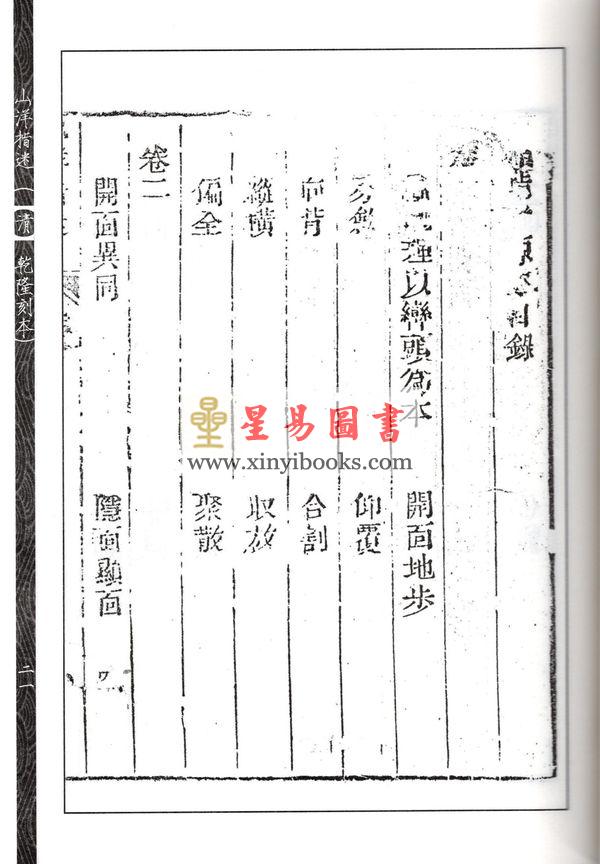 目錄
理以巒頭為本　開面地步
仰覆
向背　合割
縱橫　收放
偏全　聚散
卷二
開面異同　隱面顯面
山洋指迷（清　乾隆刻本）
二一
星易圖書
www.xinyibooks.com